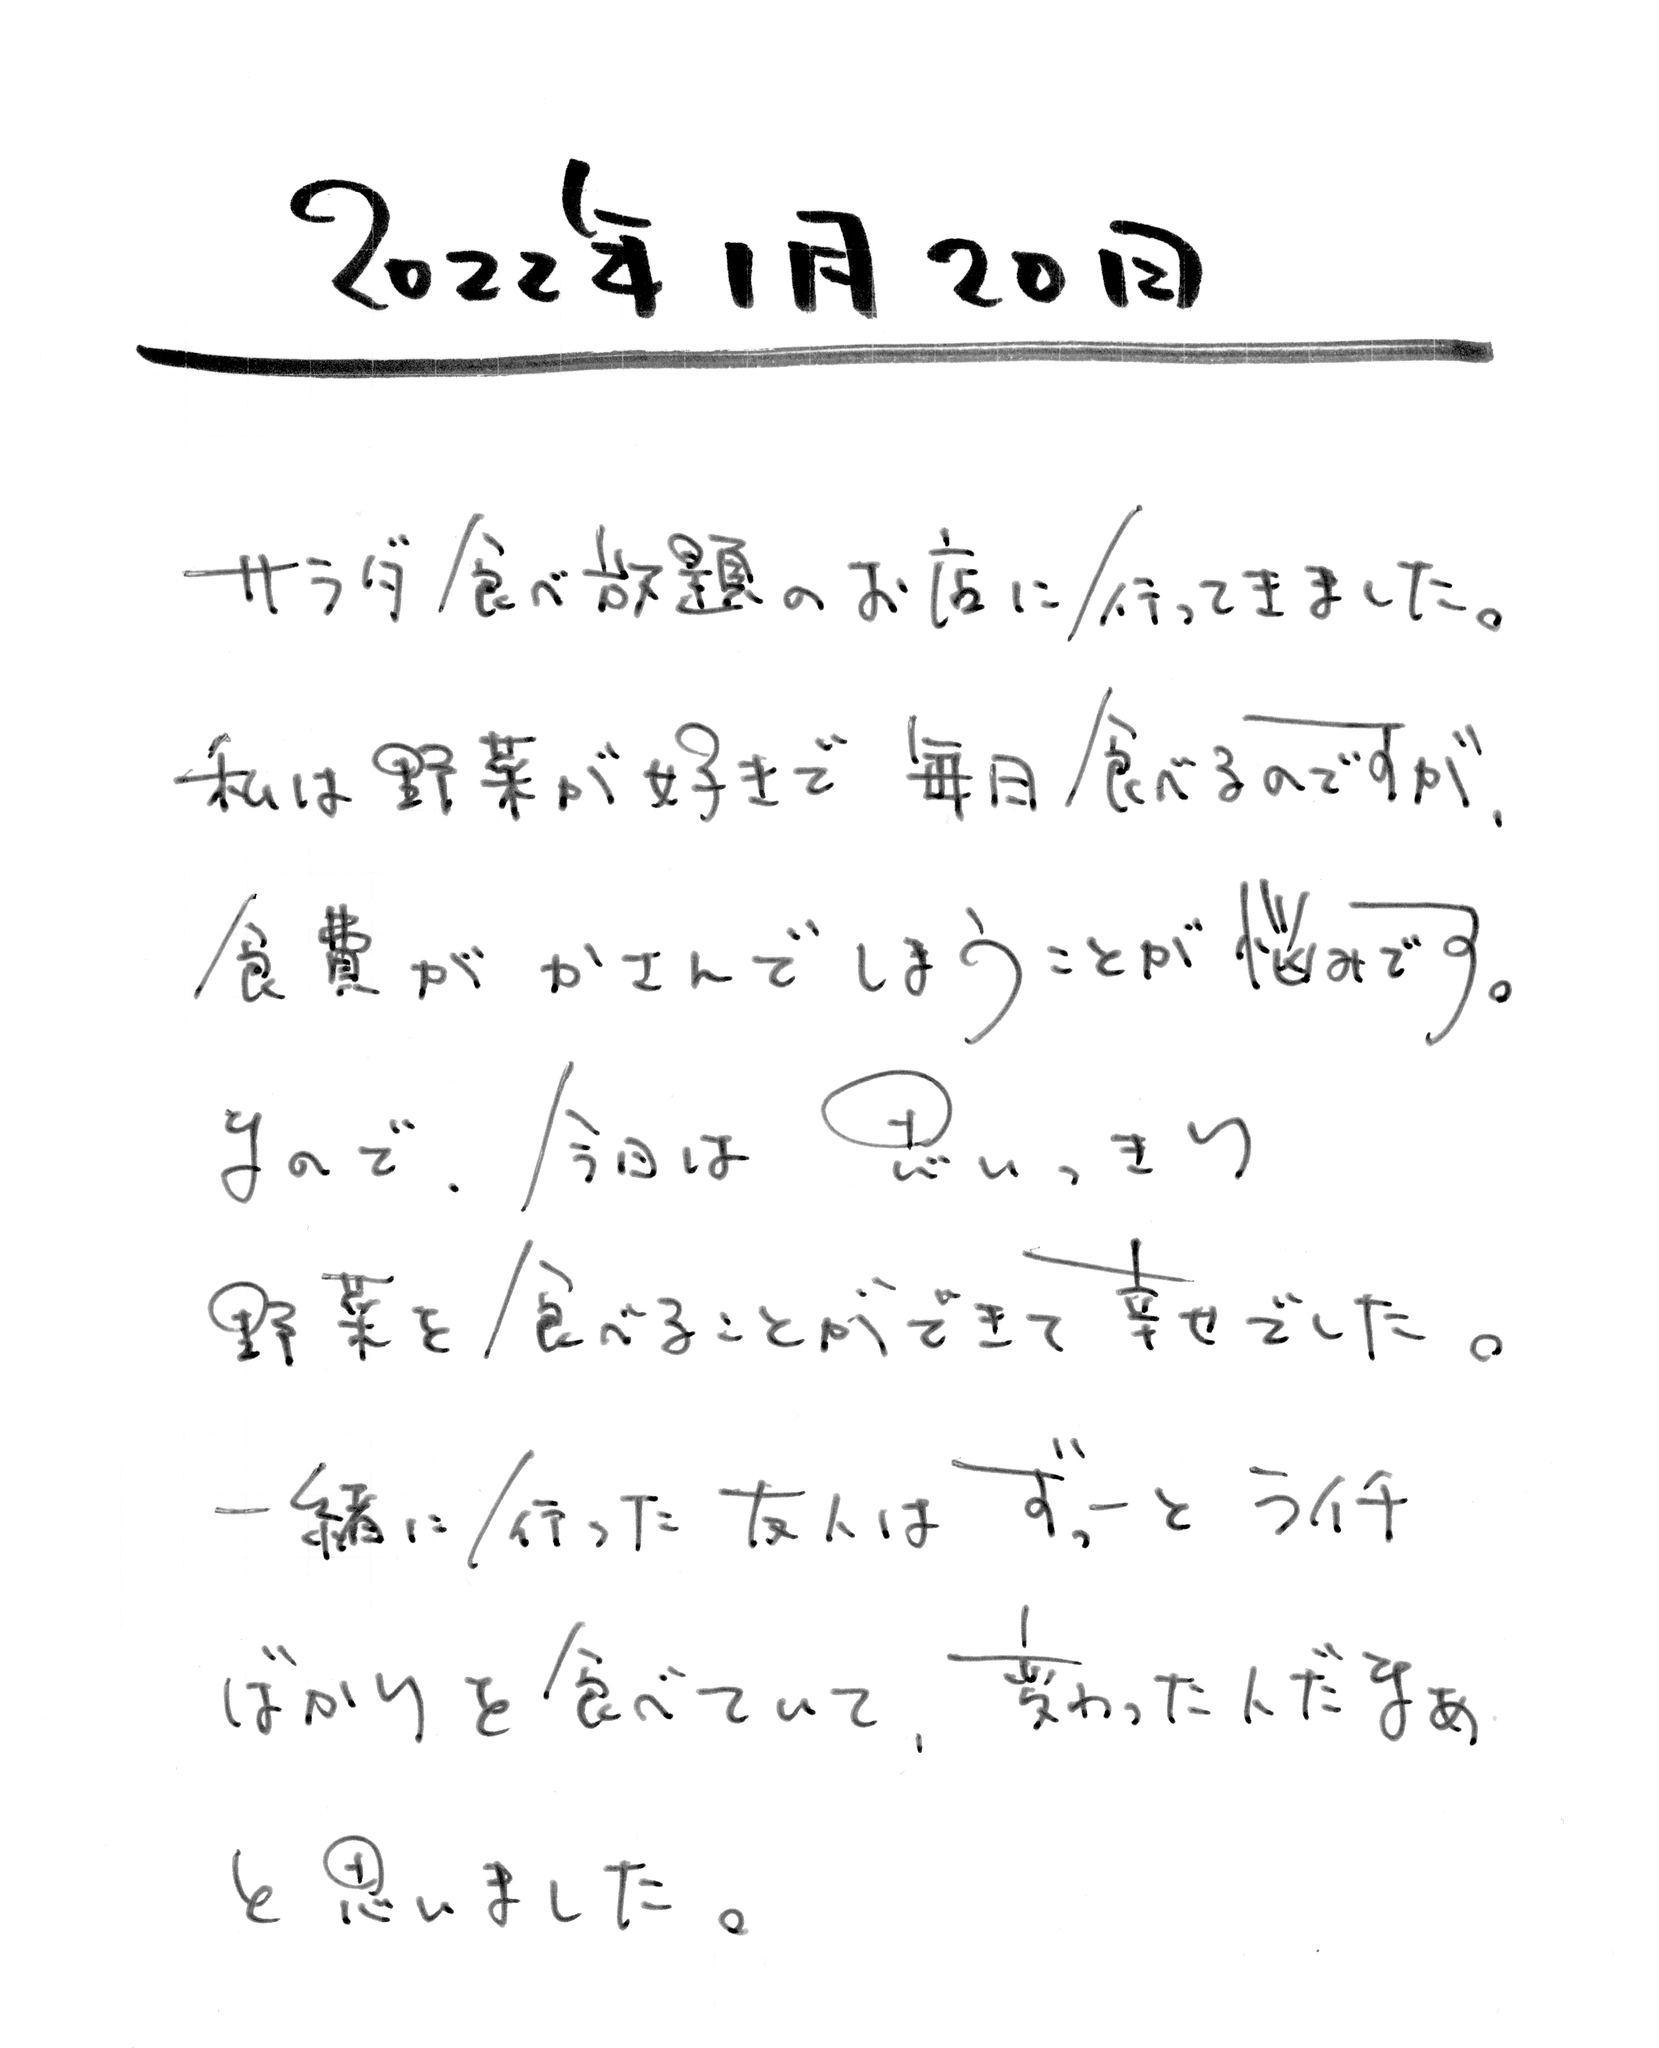 2022年1月20日
サラダ食べ放題のお店に行ってきました。
私は野菜が好きで毎日食べるのですが、
食費がかさんでしまうことが悩みです。
なので、今日は思いっきり
野菜を食べることができて幸せでした。
一緒に行った友人はずっーとライチ
ばかりを食べていて、変わった人だなあ
と思いました。